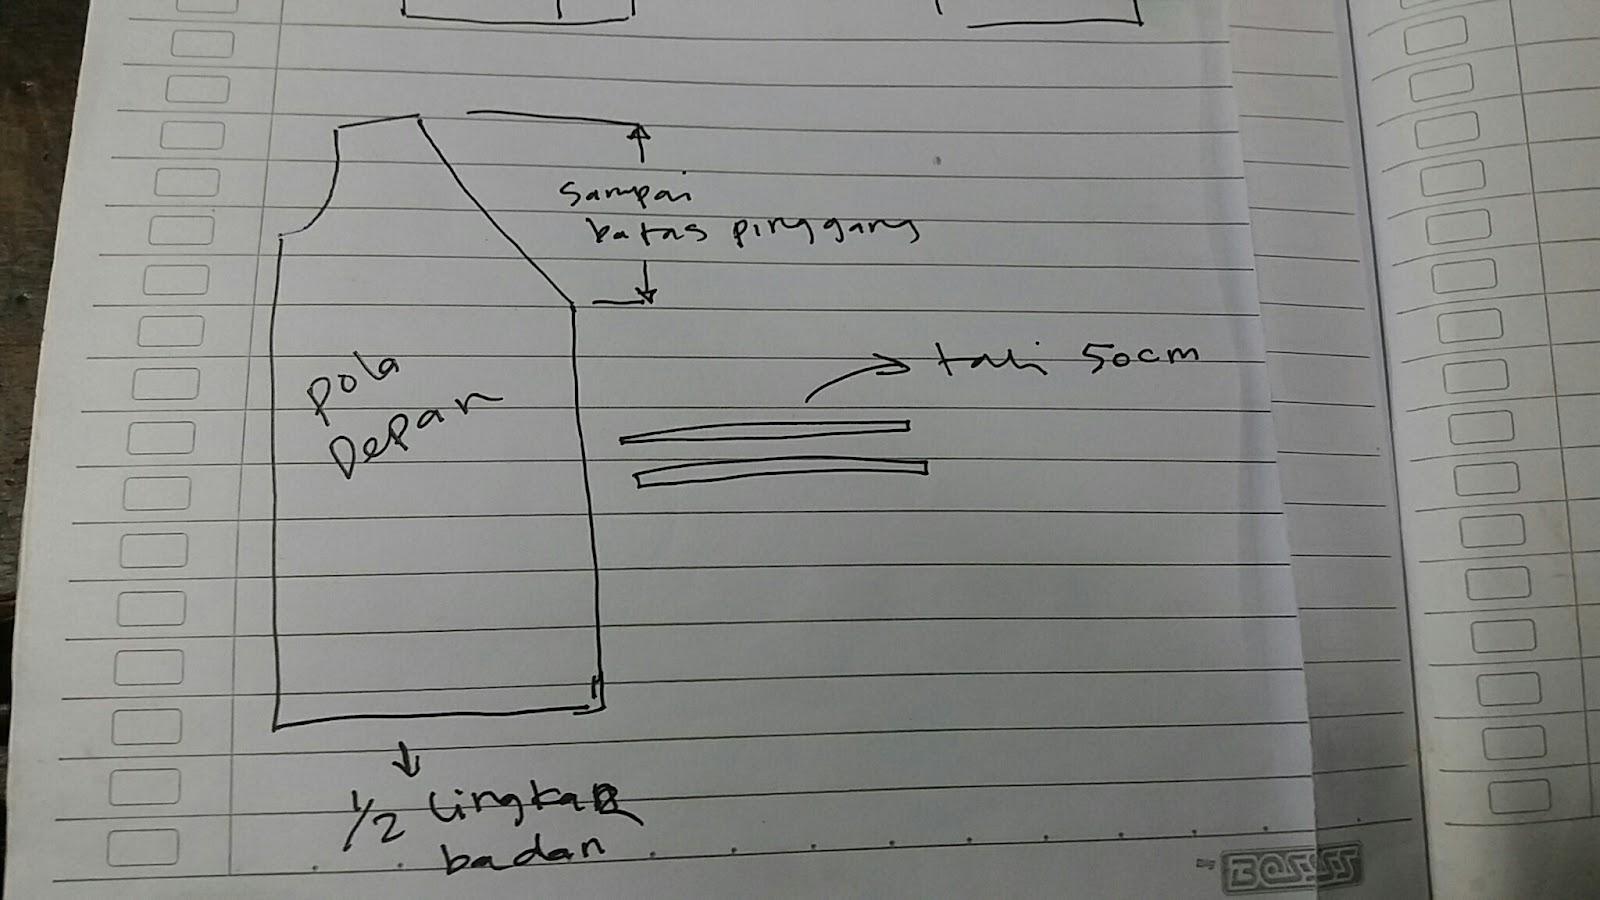 sampai
batas pinggang
pola
Depan
tali 50cm
1/2 lingkaR
badan
BOSSS